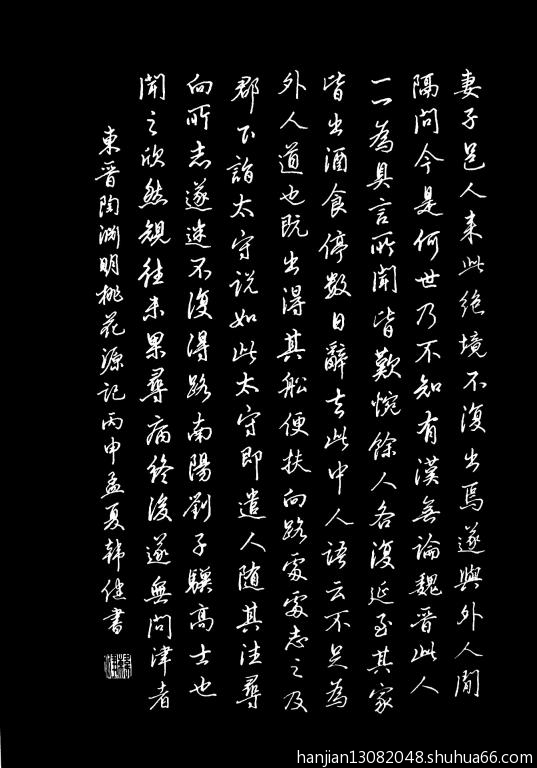 妻子邑人来此絶境不復出焉遂與外人間
隔問今是何世乃不知有漢無論魏晋此人
一一為具言所聞皆歎惋餘人各復延至其家
皆出酒食停数日辭去此中人語云不足為
外人道也既出得其船便扶向路處處志之及
郡下詣太守説如此太守即遣人随其往尋
向所志遂迷不復得路南陽劉子驥高士也
聞之欣然規往未果尋病終後遂無問津者
東晋陶渊明桃花源记丙申孟夏韩健書
hanjian13082048.shuhua66.com